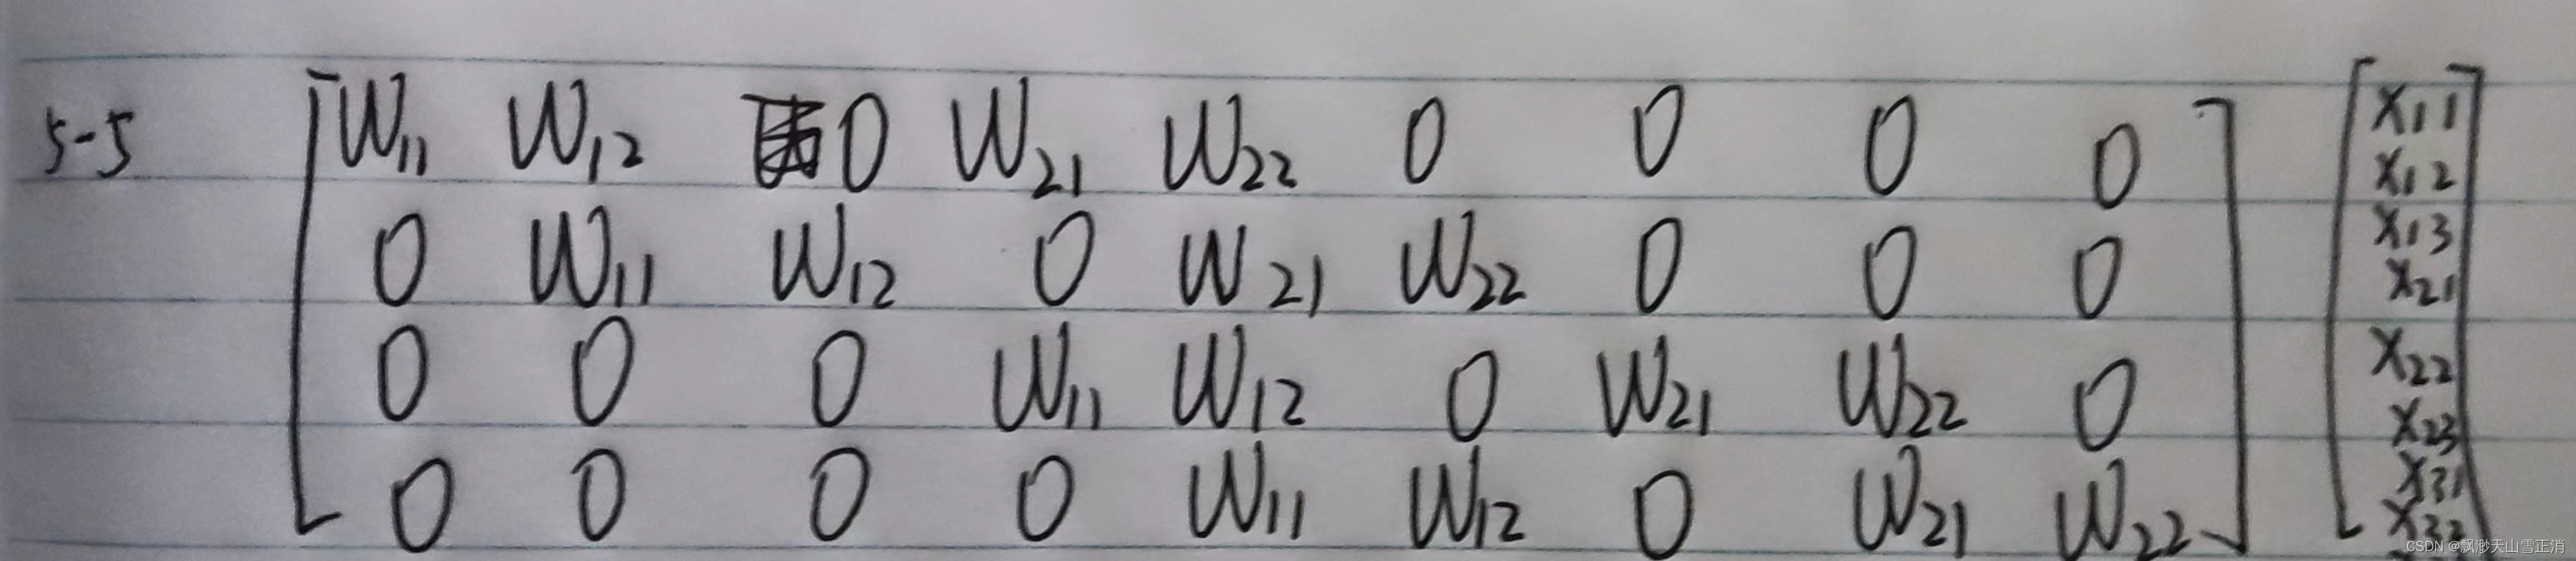 5-5
W₁₁ W₁₂ 0 W₂₁ W₂₂ 0 0 0 0
0 W₁₁ W₁₂ 0 W₂₁ W₂₂ 0 0 0
0 0 0 W₁₁ W₁₂ 0 W₂₁ W₂₂ 0
0 0 0 0 W₁₁ W₁₂ 0 W₂₁ W₂₂
x₁₁
x₁₂
x₁₃
x₂₁
x₂₂
x₂₃
x₃₁
CSDN @飘渺天山雪正消